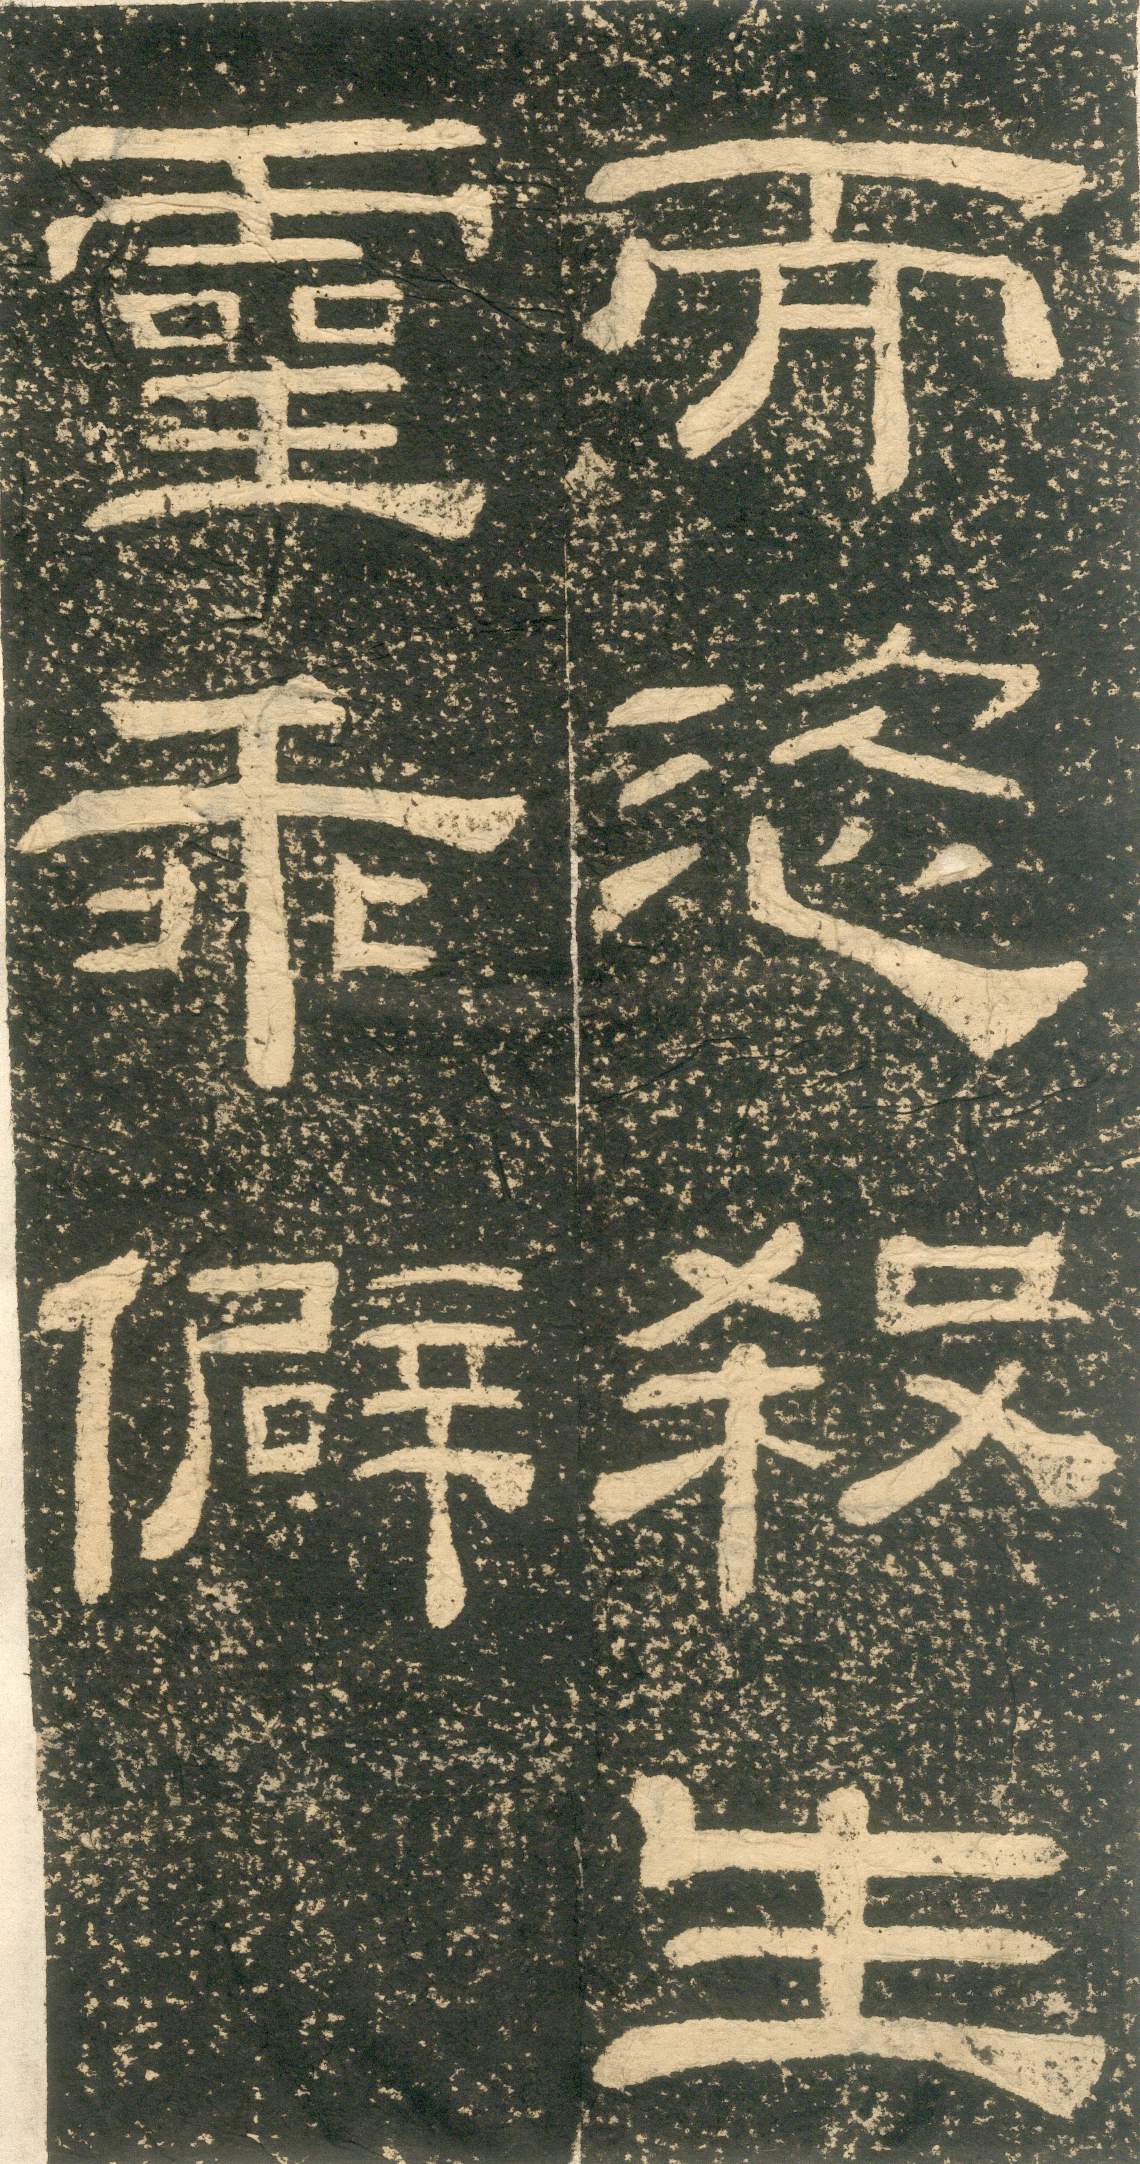 而恣殺生
靈乖僻